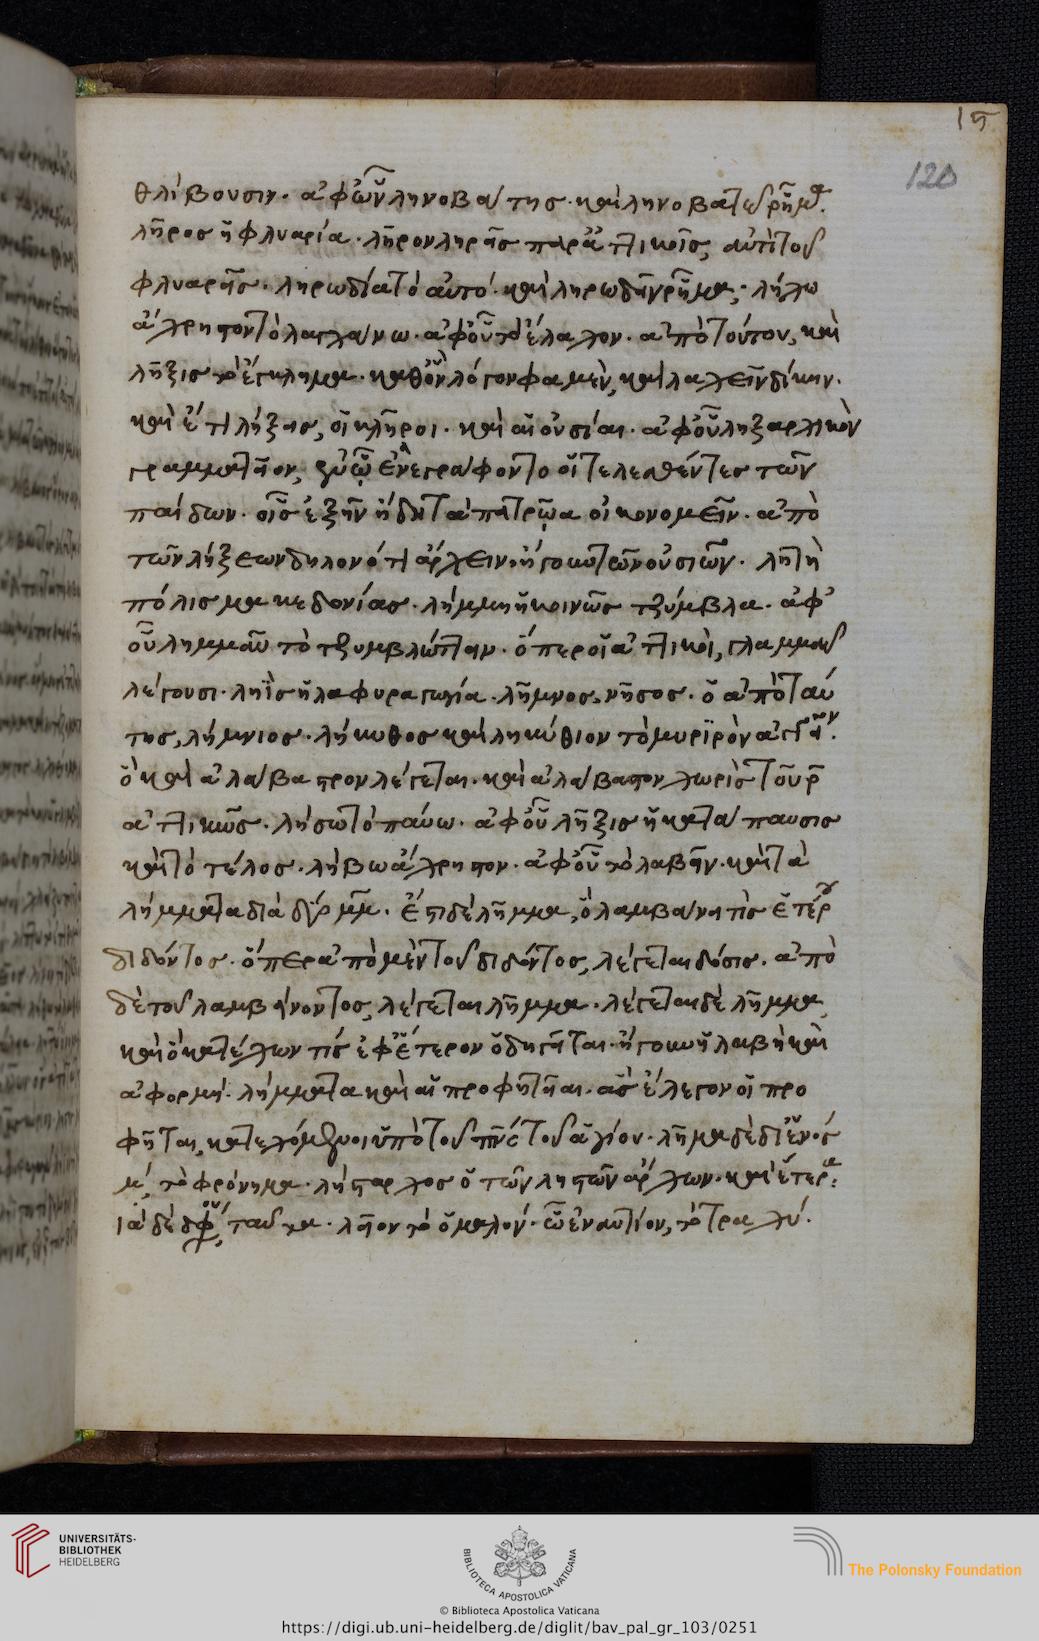 15
120
θλίβουσιν. ἀφ' ὧν ληνοβάτης. καὶ ληνοβατεῖ ῥῆμα.
λῆρος ἡ φλυαρία. λῆρον ληρεῖς παρὰ ἀττικοῖς, αὐτὶ τοῦ
φλυαρεῖς. ληρωδία τὸ αὐτό. καὶ ληρωδεῖν ῥῆμα. λήχω
ἄχρηστον τὸ λαγχάνω. ἀφ' οὗ τὸ ἔλαχον. ἀπὸ τούτου, καὶ
λῆξις τὸ ἔγκλημα. καθ' ὃν λόγον φαμὲν, καὶ λαχεῖν δίκην.
καὶ ἔτι λήξεις, οἱ κλῆροι. καὶ αἱ οὐσίαι. ἀφ' οὗ ληξιαρχικὸν
γραμματεῖον, ἐν ᾧ ἐνεγράφοντο οἱ τελεσθέντες τῶν
παίδων. οἷς ἐξῆν ἤδη τὰ πατρῷα οἰκονομεῖν. ἀπὸ
τῶν λήξεων δηλονότι ἄρχειν. ἤγουν τῶν οὐσιῶν. λητὴ
πόλις μακεδονίας. λήμμη ἡ κοινῶς τζύμβλα. ἀφ'
οὗ λημμᾶν τὸ τζυμβλώττειν. ὅπερ οἱ ἀττικοὶ, γλαμμᾶν
λέγουσι. ληῒς ἡ λαφυραγωγία. λῆμνος, νῆσος. ὁ ἀπὸ ταύ
της, λήμνιος. λήκυθος καὶ ληκύθιον τὸ μυρϊρὸν ἀγγεῖον.
ὃ καὶ ἀλάβαστρον λέγεται. καὶ ἀλάβαστον χωρὶς τοῦ ρ
ἀττικῶς. λήσω τὸ παύω. ἀφ' οὗ λῆξις ἡ κατάπαυσις
καὶ τὸ τέλος. λήβω ἄχρηστον. ἀφ' οὗ τὸ λαβεῖν. καὶ τὰ
λήμματα διὰ δύο μμ. ἔστι δὲ λῆμμα, ὃ λαμβάνει τὶς ἑτέρου
διδόντος. ὅπερ ἀπὸ μὲν τοῦ διδόντος, λέγεται δόσις. ἀπὸ
δὲ τοῦ λαμβάνοντος, λέγεται λῆμμα. λέγεται δὲ λῆμμα,
καὶ ὃ κατέχων τίς ἐφ' ἕτερον ὁδηγεῖται. ἤγουν ἡ λαβὴ καὶ
ἀφορμή. λήμματα καὶ αἱ προφητεῖαι. ἃς ἔλεγον οἱ προ
φῆται, κατεχόμενοι ὑπὸ τοῦ πνς τοῦ ἁγίου. λῆμα δὲ δι' ἑνός
μ, τὸ φρόνημα. λήσταρχος ὁ τῶν ληστῶν ἄρχων. καὶ ἕτερα
λεῖον τὸ ὁμαλόν. ᾧ ἐναντίον, τὸ τραχύ.
UNIVERSITÄTS-
BIBLIOTHEK
HEIDELBERG
BIBLIOTECA APOSTOLICA VATICANA
The Polonsky Foundation
© Biblioteca Apostolica Vaticana
https://digi.ub.uni-heidelberg.de/diglit/bav_pal_gr_103/0251